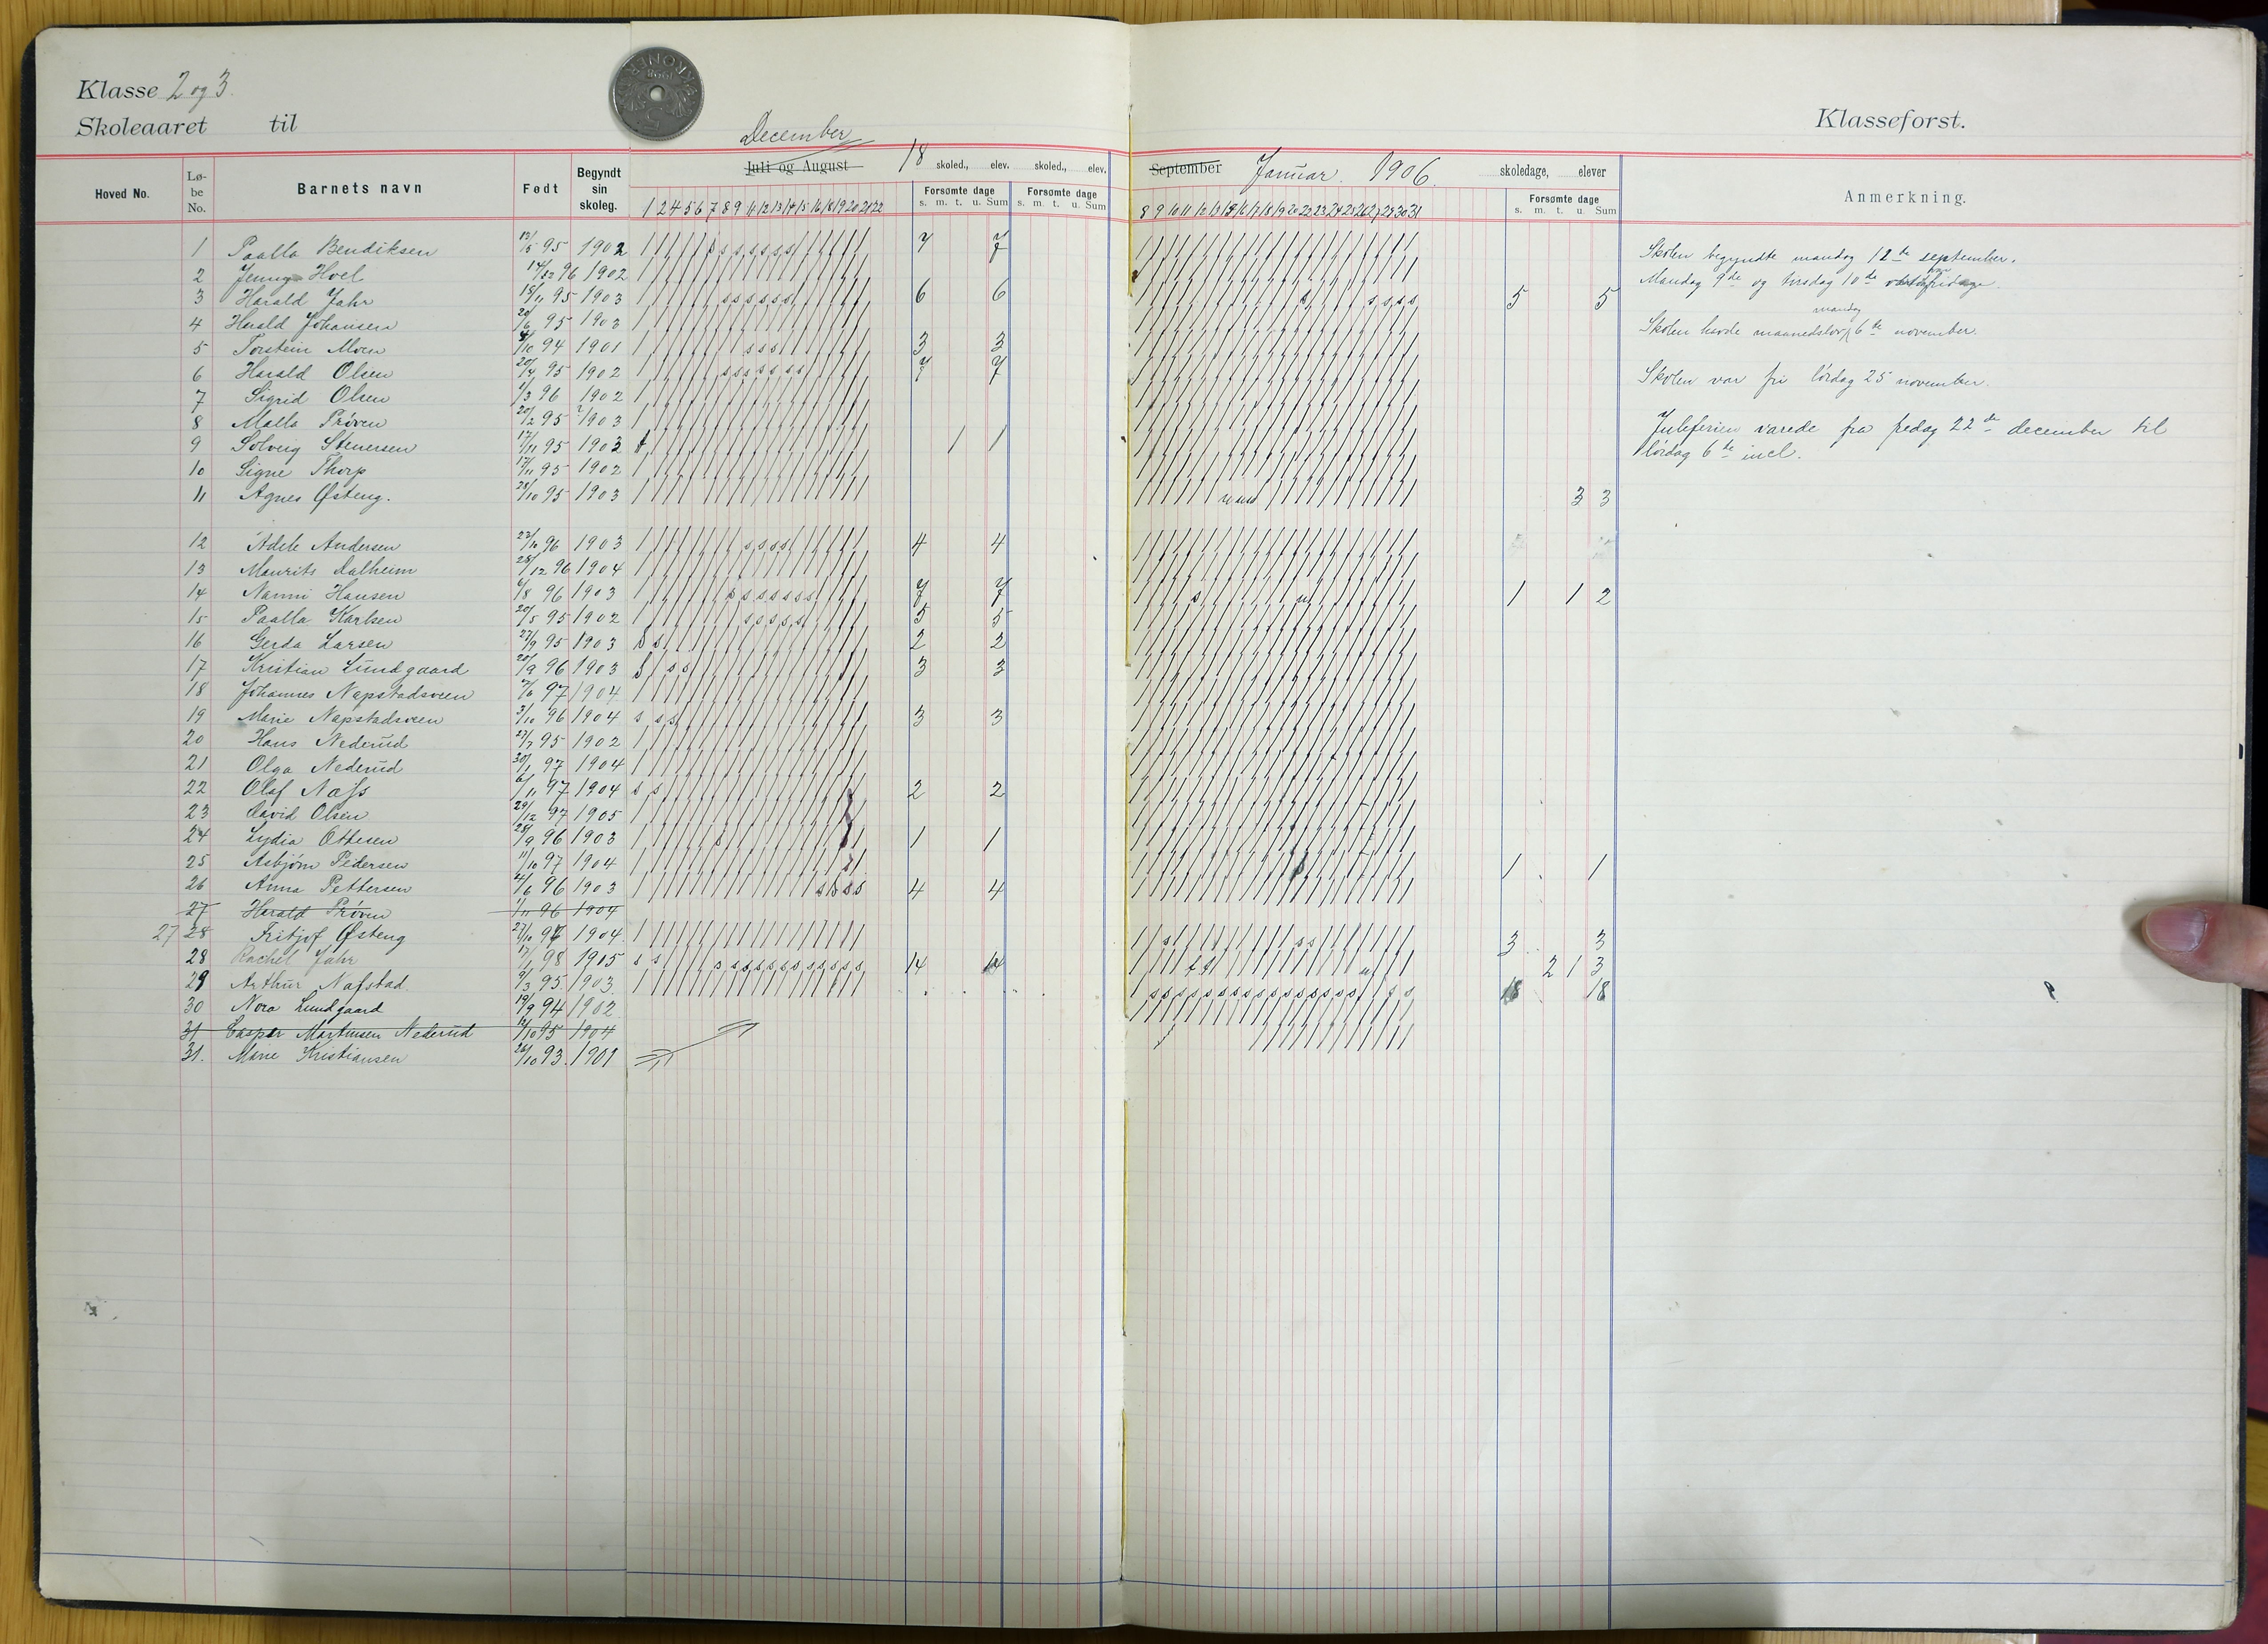 Klasse 2 og 3.
Skoleaaret til
KRONER 1998
Klasseforst.
December
Juli og August 18 skoled., elev. skoled., elev.
September Januar. 1906. skoledage, elever
Hoved No. Lø- be No. Barnets navn Født Begyndt sin skoleg. Forsømte dage Forsømte dage Forsømte dage Anmerkning.
1 2 4 5 6 7 8 9 11 12 13 14 15 16 18 19 20 21 22 s. m. t. u. Sum s. m. t. u. Sum 8 9 10 11 12 13 15 16 17 18 19 20 22 23 24 25 26 27 29 30 31 s. m. t. u. Sum
1 Paalla Bendiksen 13/5 95 1902 7 7
2 Jenny Hoel 14/12 96 1902
3 Harald Jahr 18/11 95 1903 s s s s s s 6 6 s s s s s 5 5
4 Harald Johansen 20/6 95 1903
5 Torstein Moen 4/10 94 1901 s s s 3 3
6 Harald Olsen 20/4 95 1902 s s s s s s s 7 7
7 Sigrid Olsen 1/3 96 1902
8 Malla Prøven 20/2 95 1903
9 Solveig Stenersen 17/11 95 1903 t 1 1
10 Signe Thorp 17/11 95 1902
11 Agnes Østeng. 28/10 95 1903 u u u 3 3
12 Adele Andersen 23/10 96 1903 s s s s 4 4
13 Maurits Dalheim 28/12 96 1904
14 Nanni Hansen 6/8 96 1903 s s s s s s s 7 7 s u 1 1 2
15 Paalla Karlsen 20/5 95 1902 s s s s s 5 5
16 Gerda Larsen 27/9 95 1903 s s 2 2
17 Kristian Lundgaard 20/9 96 1903 s s s 3 3
18 Johannes Napstadsveen 7/6 97 1904
19 Marie Napstadsveen 3/10 96 1904 s s s 3 3
20 Hans Nederud 27/7 95 1902
21 Olga Nederud 30/1 97 1904
22 Olaf Næss 6/11 97 1904 s s 2 2
23 David Olsen 29/12 97 1905
24 Lydia Ottesen 28/9 96 1903 s 1 1
25 Asbjørn Pedersen 11/10 97 1904 1 1
26 Anna Pettersen 4/6 96 1903 s s s s 4 4
27 Harald Prøven 1/11 96 1904
27 28 Fritjof Østeng 23/10 97 1904. s s s 3 3
28 Rachel Jahr 17/1 98 1905 s s s s s s s s s s s s s s 14 14 t t u 2 1 3
29 Arthur Nafstad. 9/3 95. 1903. s s s s s s s s s s s s s s s s s s 18 18
30 Nora Lundgaard 19/9 94 1902
31 Caspar Martinsen Nederud 12/10 95 1904
31. Marie Kristiansen 26/10 93. 1901
Skolen begyndte mandag 12te september.
Mandag 9de og tirsdag 10de
mandag
Skolen havde maanedslov 6te november.
Skolen var fri lördag 25 november.
Juleferien varede fra fredag 22de december til
lördag 6te incl.